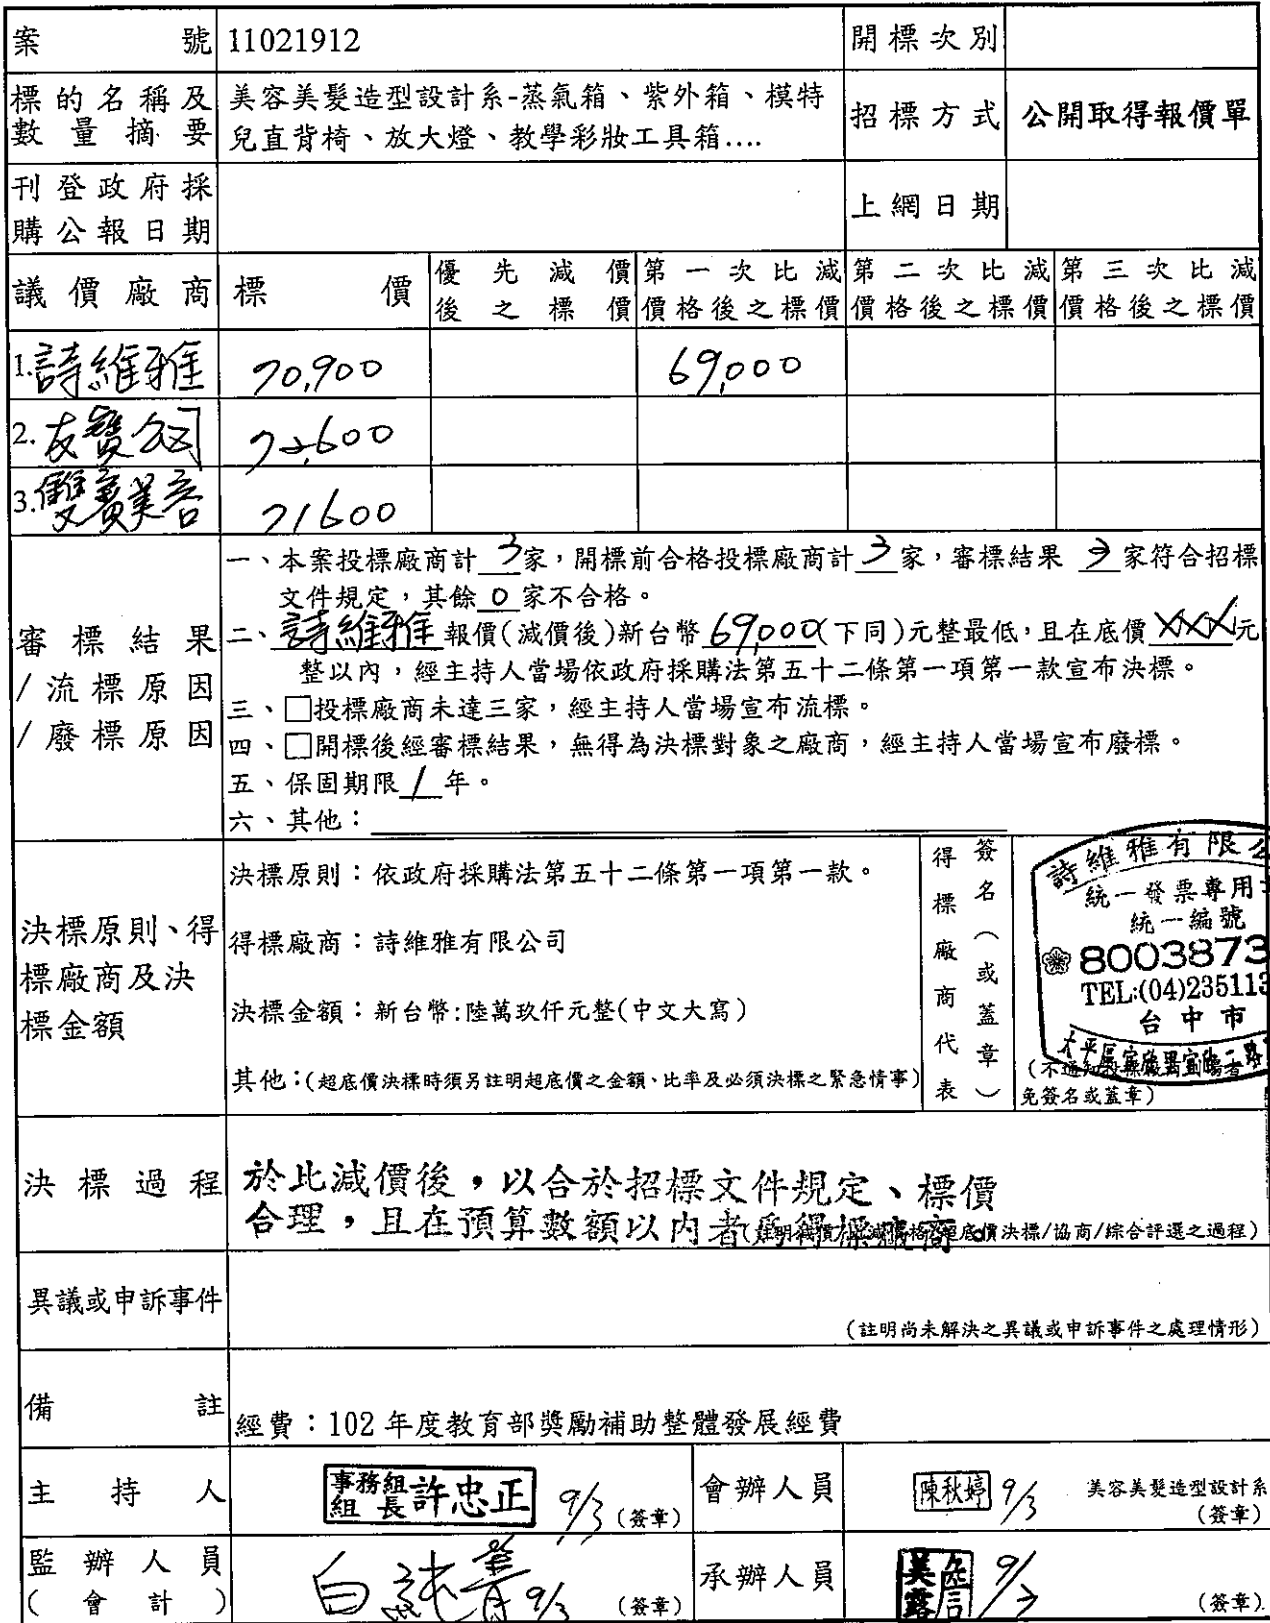 案號 11021912 開標次別
標的名稱及數量摘要 美容美髮造型設計系-蒸氣箱、紫外箱、模特
兒直背椅、放大燈、教學彩妝工具箱....
招標方式 公開取得報價單
刊登政府採
購公報日期
上網日期
議價廠商 標價 優先減價後之標價 第一次比減價格後之標價 第二次比減價格後之標價 第三次比減價格後之標價
1.詩維雅 70,900 69,000
2.友寶公司 72,600
3.雙寶美容 71600
審標結果
/流標原因
/廢標原因
一、本案投標廠商計3家,開標前合格投標廠商計3家,審標結果 3家符合招標
文件規定,其餘0家不合格。
二、詩維雅報價(減價後)新台幣69,000(下同)元整最低,且在底價XXX元
整以內,經主持人當場依政府採購法第五十二條第一項第一款宣布決標。
三、□投標廠商未達三家,經主持人當場宣布流標。
四、□開標後經審標結果,無得為決標對象之廠商,經主持人當場宣布廢標。
五、保固期限1年。
六、其他:
決標原則、得
標廠商及決
標金額
決標原則:依政府採購法第五十二條第一項第一款。
得標廠商:詩維雅有限公司
決標金額:新台幣:陸萬玖仟元整(中文大寫)
其他:(超底價決標時須另註明超底價之金額、比率及必須決標之緊急情事)
得標廠商代表
簽名(或蓋章)
詩維雅有限公
統一發票專用
統一編號
8003873
TEL:(04)235113
台中市
太平區
(不通知投標廠商到場者
免簽名或蓋章)
決標過程
於比減價後,以合於招標文件規定、標價
合理,且在預算數額以內者為得標廠商。
(註明減價/比減價格/超底價決標/協商/綜合評選之過程)
異議或申訴事件
(註明尚未解決之異議或申訴事件之處理情形)
備註 經費:102年度教育部獎勵補助整體發展經費
主持人 事務組組長許忠正 9/3 (簽章)
會辦人員 陳秋婷 9/3 美容美髮造型設計系
(簽章)
監辦人員
(會計)
9/3 (簽章)
承辦人員 9/3 (簽章)